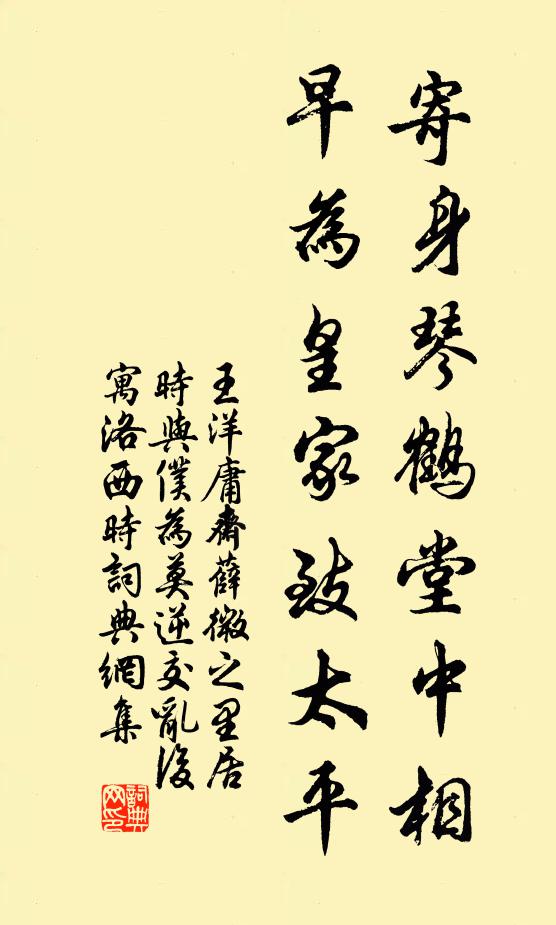 寄身琴鶴堂中相
早為皇家致太平
王洋庸齋薛徽之里居
時與僕為莫逆交亂後
寓洛西時詞典網集
詞典
网印